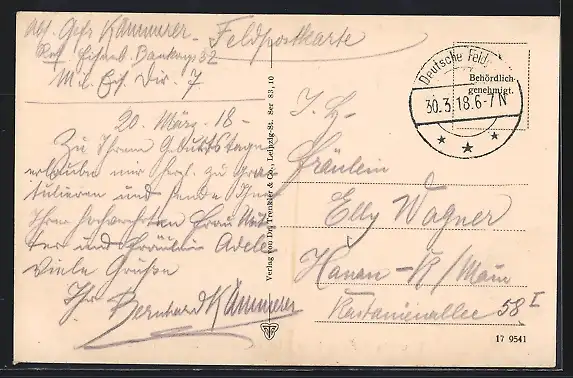 Abs. Gefr Kämmerer
Feldpostkarte
Res. Eisenb. Baukomp 32
M. E. Eis. Dir. 7
20. März 18 -
Zu Ihrem Gburtstage
erlaube mir herzl. zu gra-
tulieren und sende Ihnen
Ihrer hochverehrten Frau Mut-
ter und Fräulein Adele
viele Grüße
Ihr Bernhard Kämmerer
Verlag von Dr. Trenkler & Co., Leipzig-St. Ser 83, 10
Deutsche Feld
30.3.18.6-7N
Behördlich
genehmigt.
Fräulein
Elly Wagner
Hanau - a/Main
Kastanienallee 58 I
17 9541